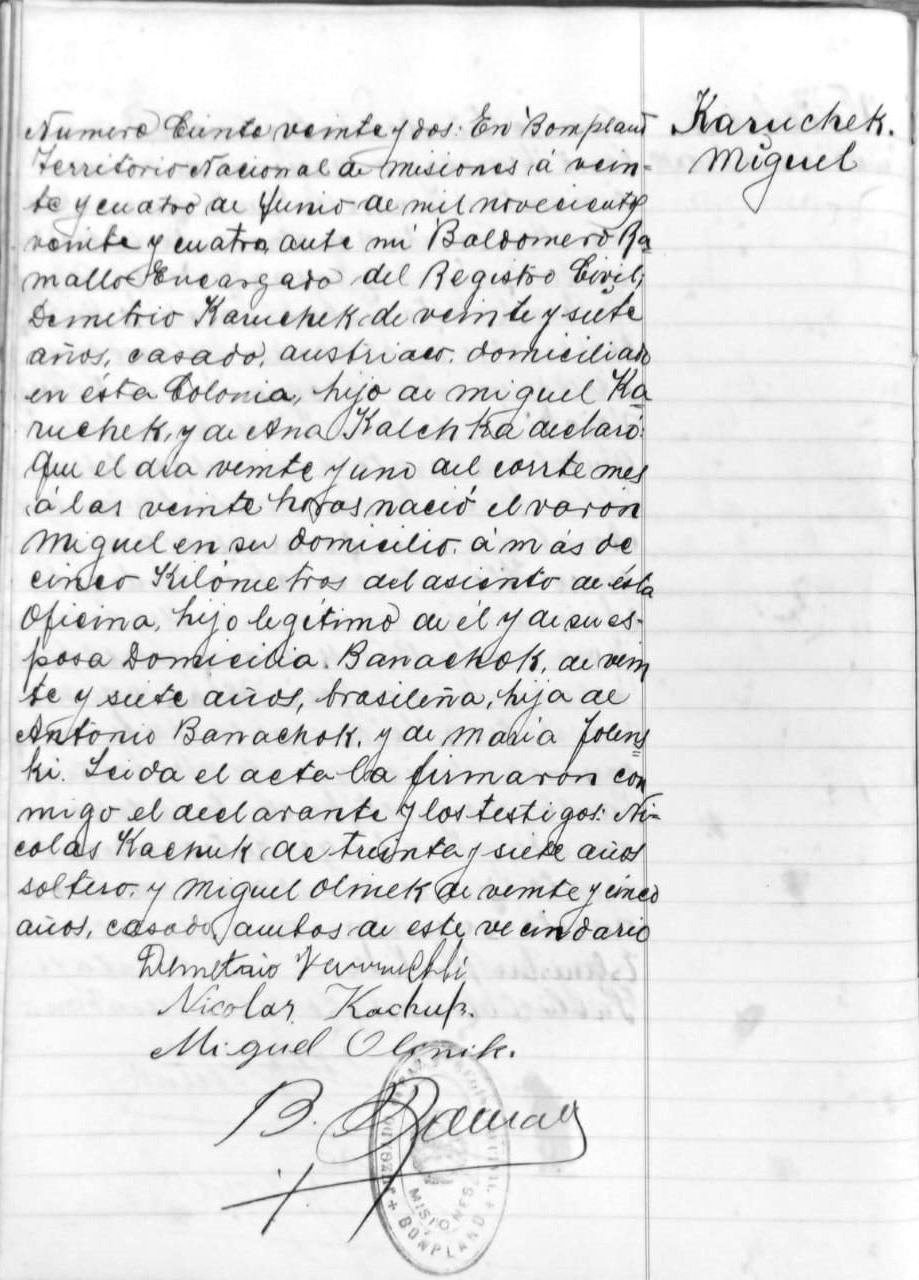 Karuchek.
Miguel
Numero Ciento veinte y dos: En Bompland
Territorio Nacional de misiones á vein-
te y cuatro de Junio de mil novecientos
veinte y cuatro, ante mi Baldomero Ra
mallo Encargado del Registro Civil;
Demetrio Karuchek de veinte y siete
años, casado, austriaco, domiciliado
en ésta Colonia, hijo de miguel Ka
ruchek, y de Ana Kalchka declaró:
Que el dia veinte y uno del corrte mes
á las veinte horas nació el varon
Miguel en su domicilio, á más de
cinco Kilómetros del asiento de ésta
Oficina, hijo legítimo de él y de su es-
posa Domicilia Banachok, de vein
te y siete años, brasileña, hija de
Antonio Banachok, y de maria Jolens
ki. Leida el acta la firmaron con
migo el declarante y los testigos: Ni-
colas Kachuk de treinta y siete años
soltero, y Miguel Olinek de veinte y cinco
años, casado, ambos de este vecindario
Demetrio
Nicolas Kachuk.
Miguel Olenik.
B. Ramallo
MISIONES
BONPLAND